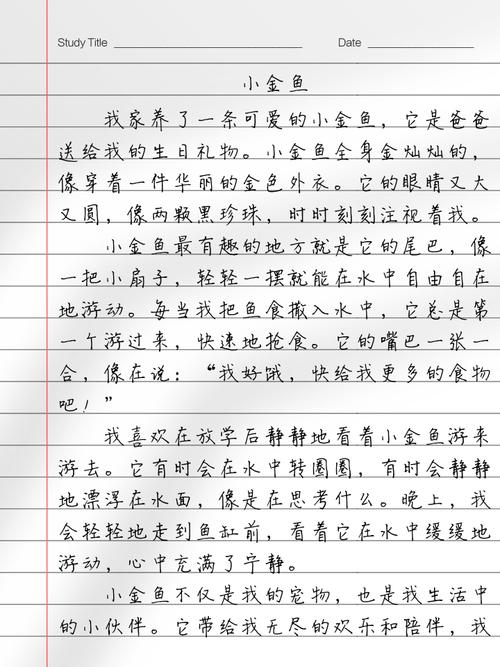 Study Title
Date
小金鱼
我家养了一条可爱的小金鱼，它是爸爸
送给我的生日礼物。小金鱼全身金灿灿的，
像穿着一件华丽的金色外衣。它的眼睛又大
又圆，像两颗黑珍珠，时时刻刻注视着我。
小金鱼最有趣的地方就是它的尾巴，像
一把小扇子，轻轻一摆就能在水中自由自在
地游动。每当我把鱼食撒入水中，它总是第
一个游过来，快速地抢食。它的嘴巴一张一
合，像在说：“我好饿，快给我更多的食物
吧！”
我喜欢在放学后静静地看着小金鱼游来
游去。它有时会在水中转圈圈，有时会静静
地漂浮在水面，像是在思考什么。晚上，我
会轻轻地走到鱼缸前，看着它在水中缓缓地
游动，心中充满了宁静。
小金鱼不仅是我的宠物，也是我生活中
的小伙伴。它带给我无尽的欢乐和陪伴，我